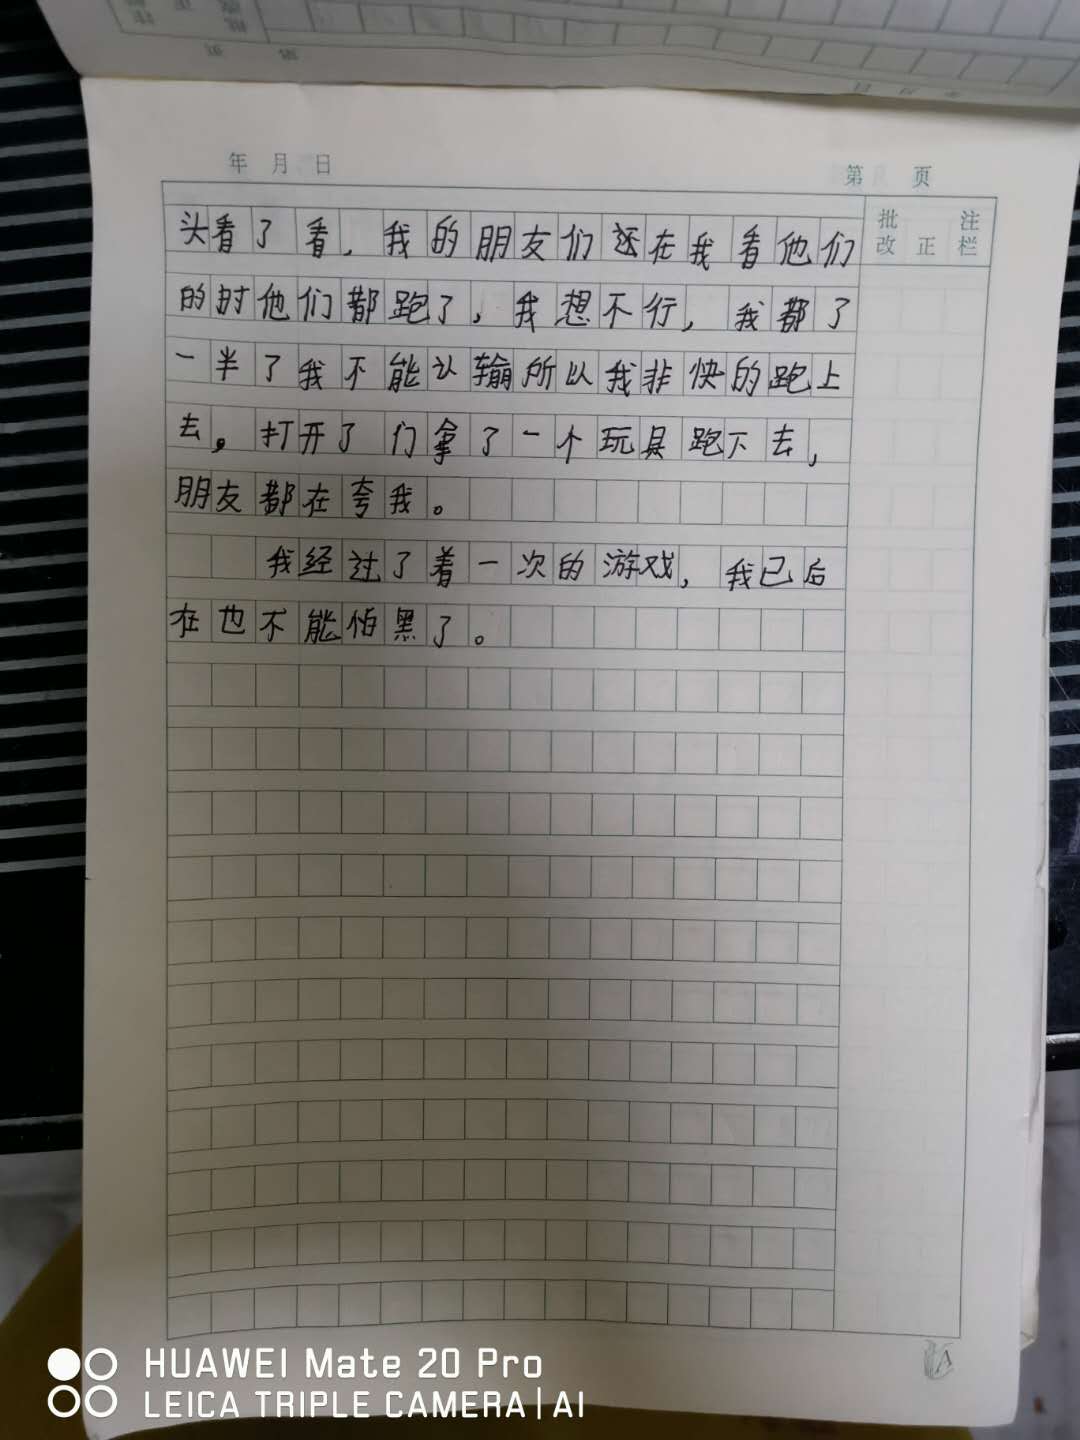 年 月 日
第 页
批改 正 注栏
头看了看，我的朋友们还在我看他们
的时他们都跑了，我想不行，我都了
一半了我不能认输所以我非快的跑上
去。打开了门拿了一个玩具跑下去，
朋友都在夸我。
我经过了着一次的游戏，我已后
在也不能怕黑了。
HUAWEI Mate 20 Pro
LEICA TRIPLE CAMERA | AI